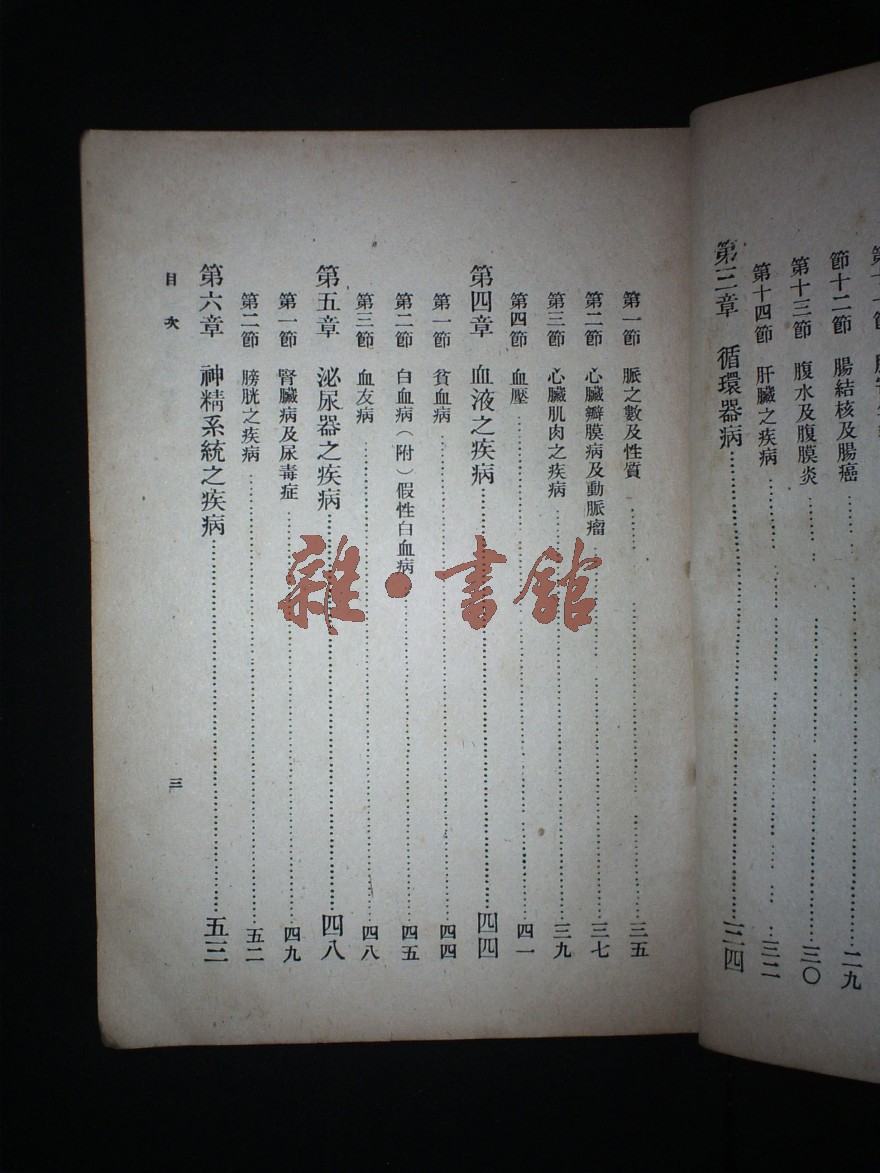 節十二節 腸結核及腸癌 二九
第十三節 腹水及腹膜炎 三〇
第十四節 肝臟之疾病 三二
第三章 循環器病 三四
第一節 脈之數及性質 三五
第二節 心臟瓣膜病及動脈瘤 三七
第三節 心臟肌肉之疾病 三九
第四節 血壓 四一
第四章 血液之疾病 四四
第一節 貧血病 四四
第二節 白血病(附)假性白血病 四五
第三節 血友病 四八
第五章 泌尿器之疾病 四八
第一節 腎臟病及尿毒症 四九
第二節 膀胱之疾病 五二
第六章 神精系統之疾病 五三
目次 三
雜·書館